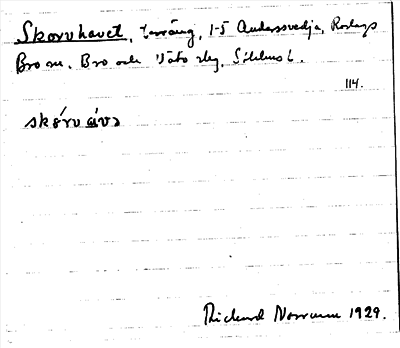 Skorvhavet, terräng, 1-5 Andersvedja, Roslags
Bro sn. Bro och Vätö slg, Sthlms l.
114.
skórv àva
Rickard Norrman 1929.